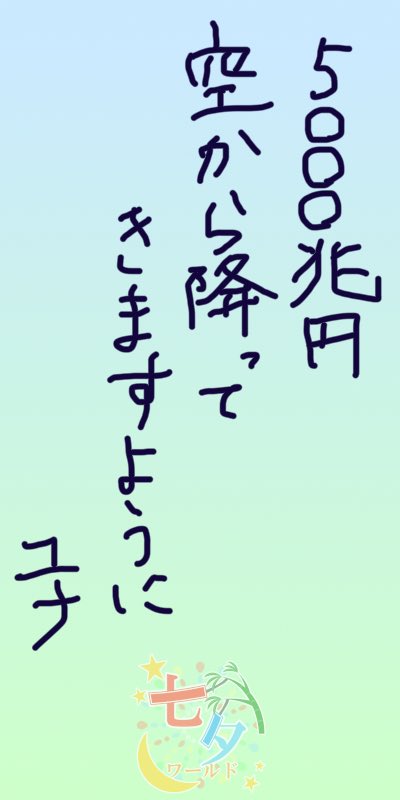 5000兆円
空から降って
きますように
ユナ
七夕
ワールド